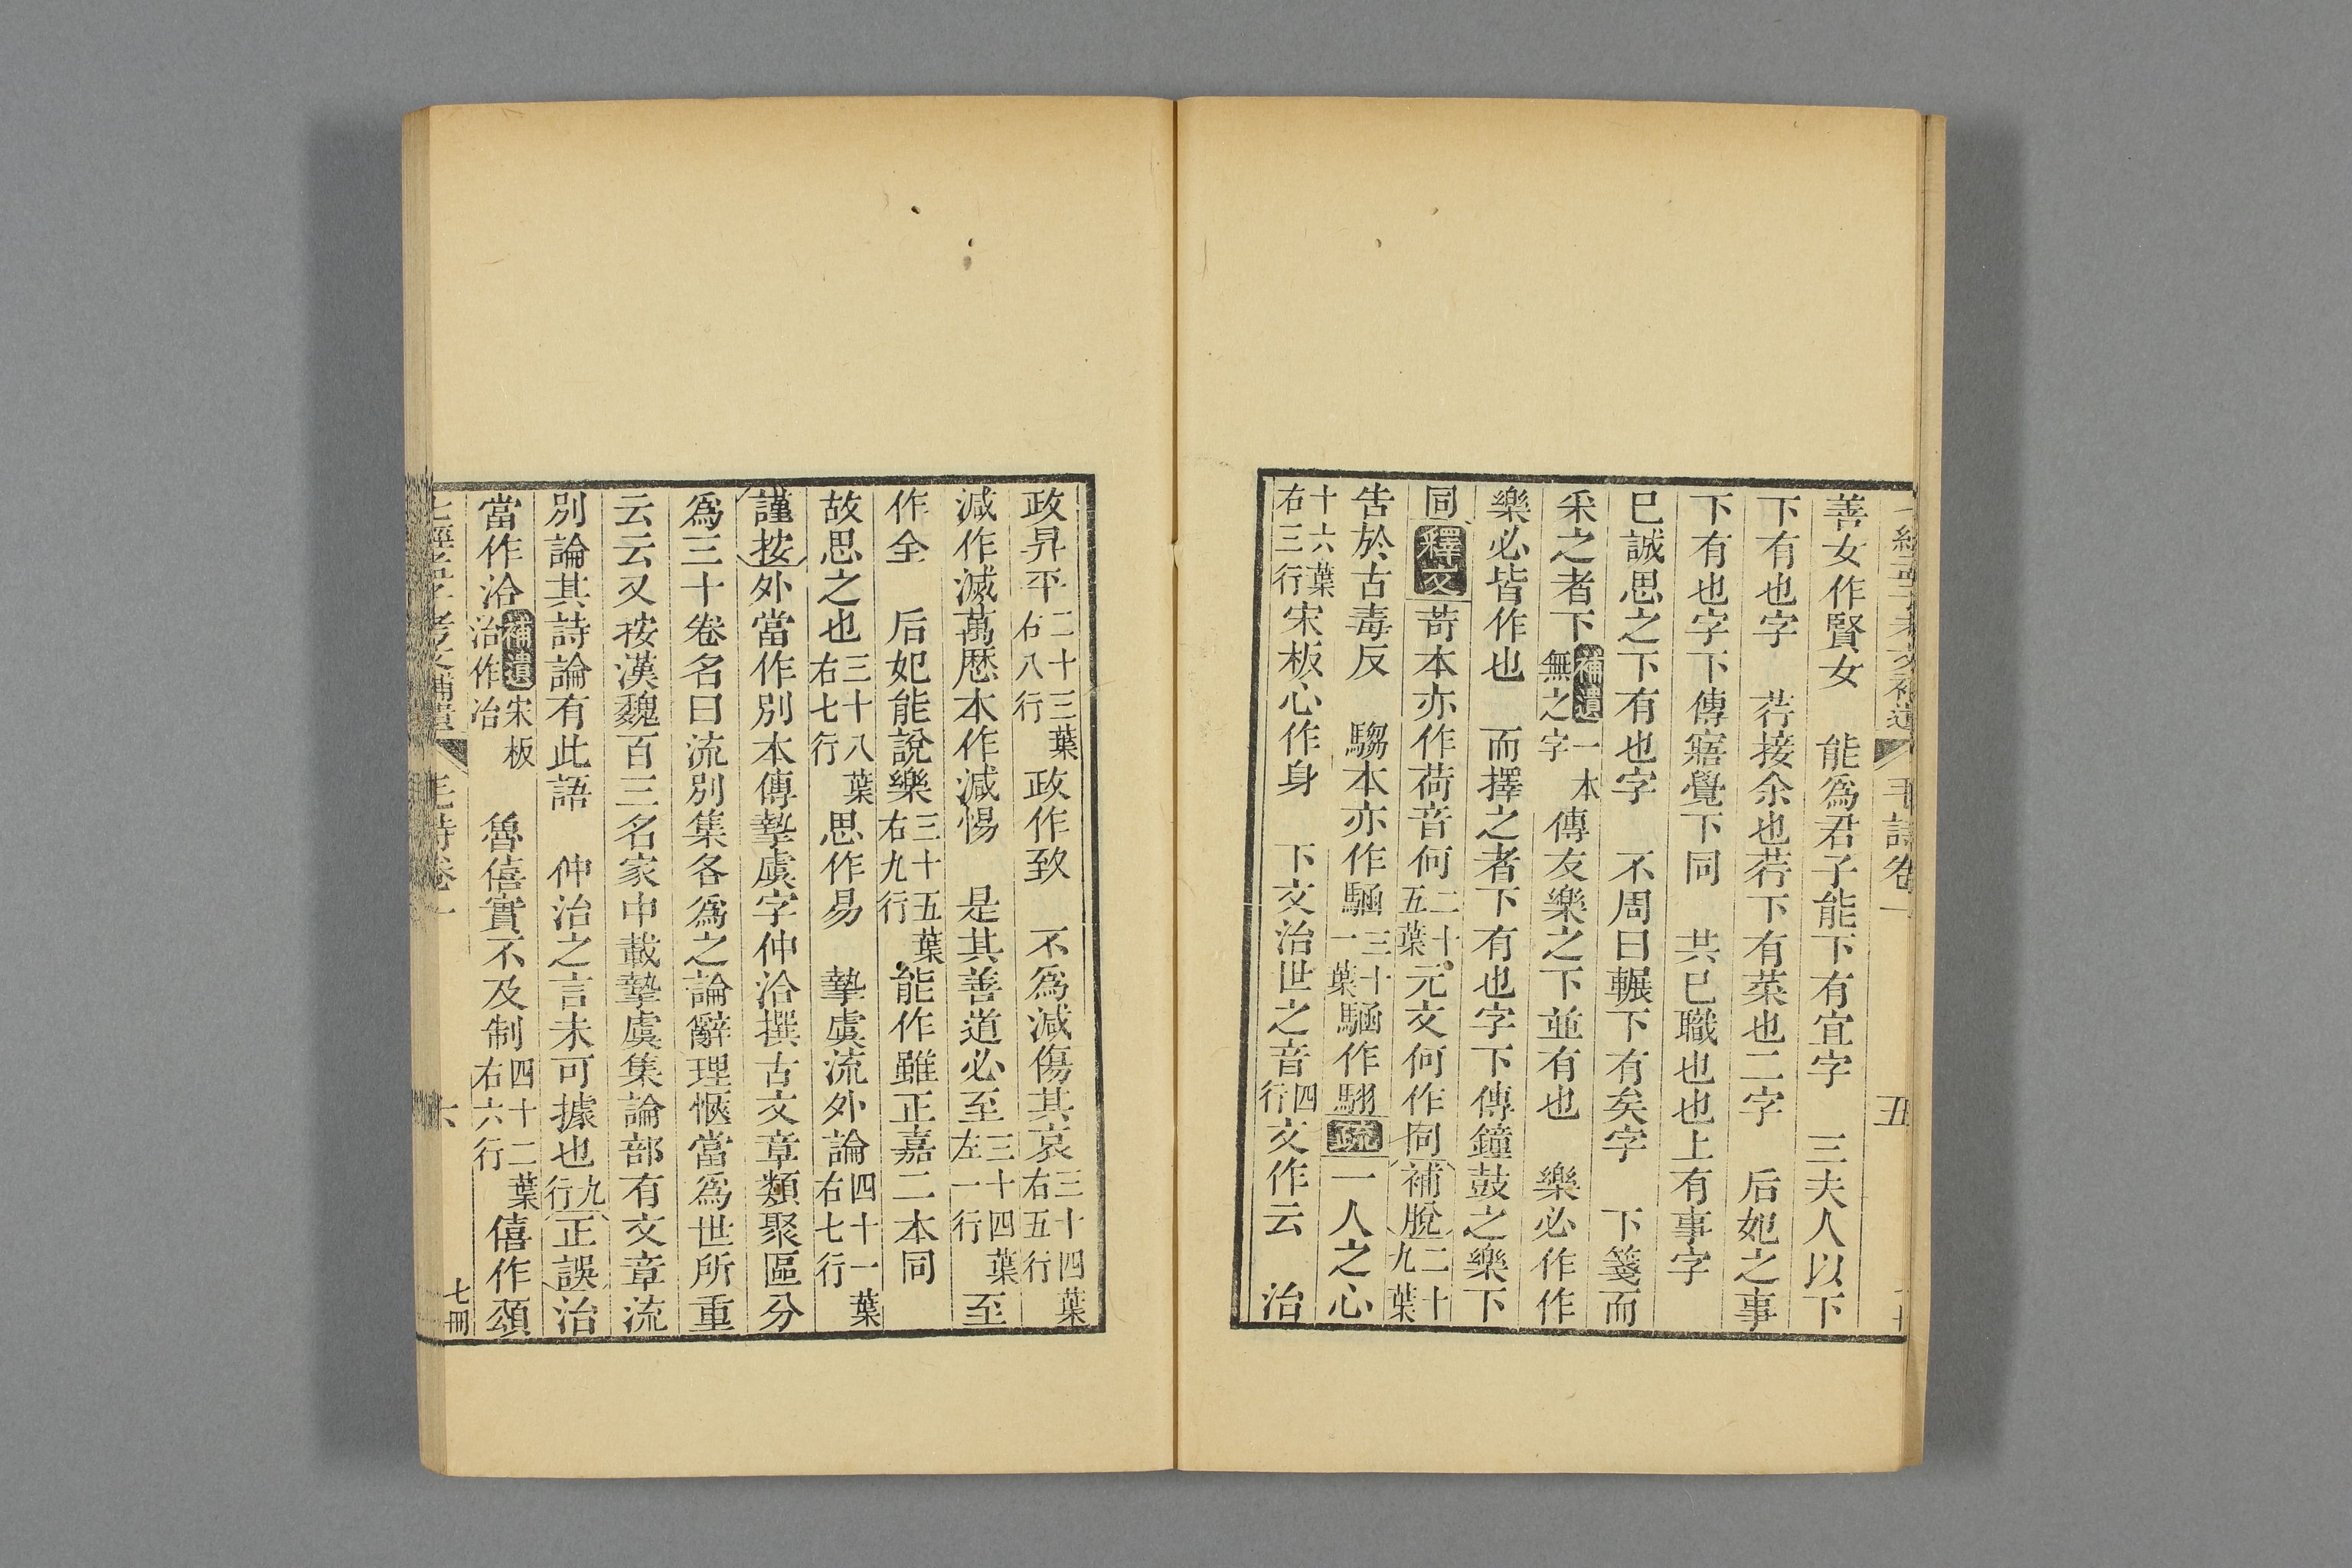 善女作賢女　能爲君子能下有宜字　三夫人以下
下有也字　荇接余也荇下有菜也二字　后妃之事
下有也字下傳寤覺下同　共已職也也上有事字
已誠思之下有也字　不周曰輾下有矣字　下箋而
采之者下補遺一本無之字傳友樂之下並有也　樂必作作
樂必皆作也　而擇之者下有也字下傳鐘鼓之樂下
同釋文苛本亦作荷音何二十五葉元文何作㤚補脫二十九葉
吿於古毒反　騶本亦作騶三十一葉作騶疏一人之心
十六葉右三行宋板心作身　下文治世之音四行文作云　治
政昇平二十三葉右八行政作致　不爲減傷其哀三十四葉右五行
減作滅萬曆本作減惕　是其善道必至三十四葉左一行至
作全　后妃能說樂三十五葉右九行能作雖正嘉二本同
故思之也三十八葉右七行思作易　摯虞流外論四十一葉右七行
謹按外當作別本傳摯虞字仲洽撰古文章類聚區分
爲三十卷名曰流別集各爲之論辭理愜當爲世所重
云云又按漢魏百三名家中載摯虞集論部有文章流
別論其詩論有此語　仲治之言未可據也九行正誤治
當作洽補遺宋板治作冶　魯僖實不及制四十二葉右六行僖作頌
毛詩卷一
六
七冊
毛詩卷一
五